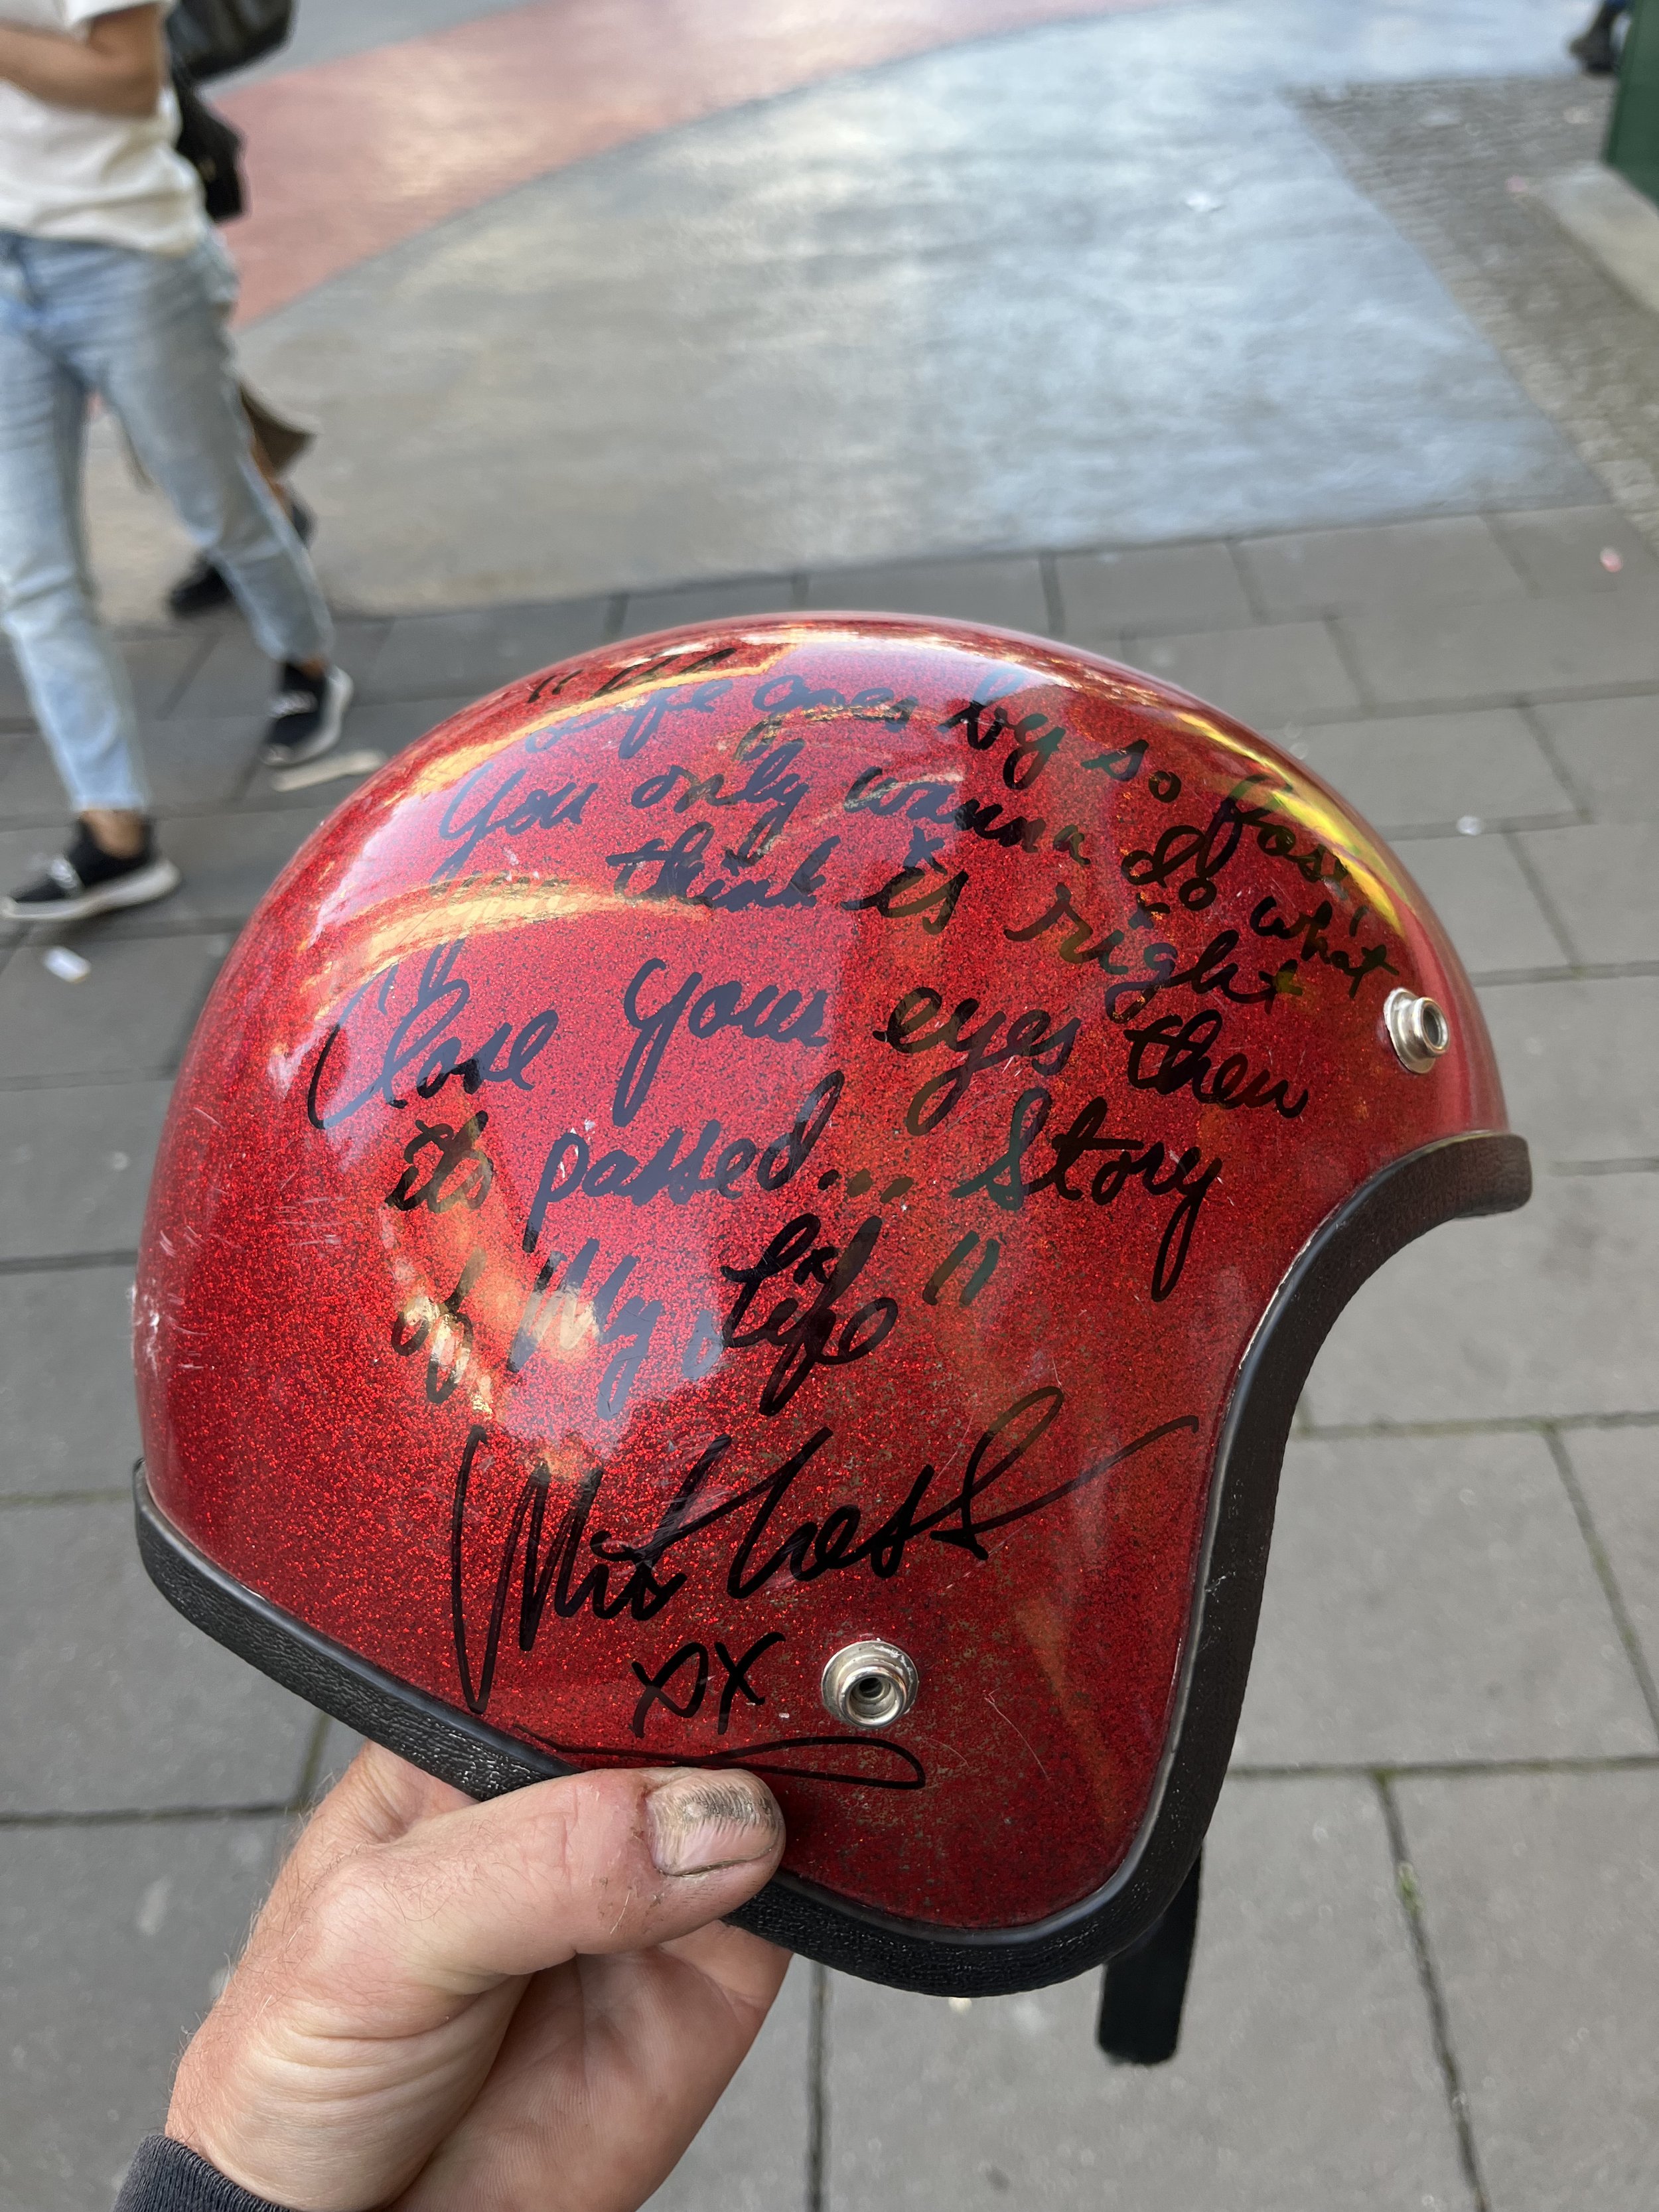 "Life goes by so fast,
You only wanna do what
think is right
Close your eyes then
it's passed... Story
of My life"
xx